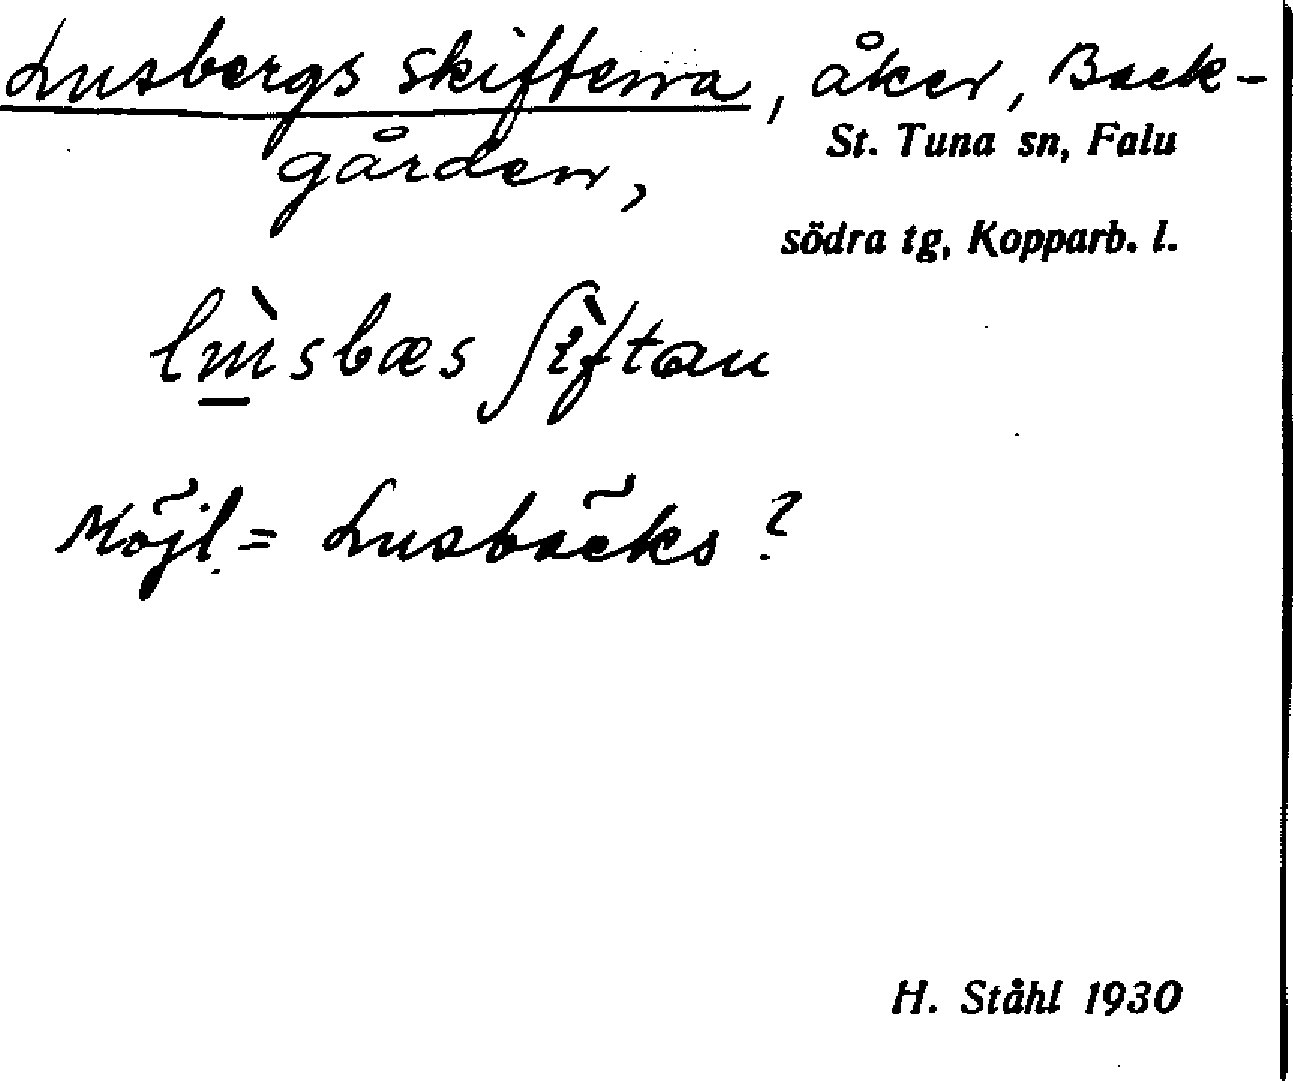 Lusbergs skifterna, åker, Back-
St. Tuna sn, Falu
gården,
södra tg, Kopparb. l.
lùsbæs ʃìftau
Möjl. = Lusbäcks ?
H. Ståhl 1930